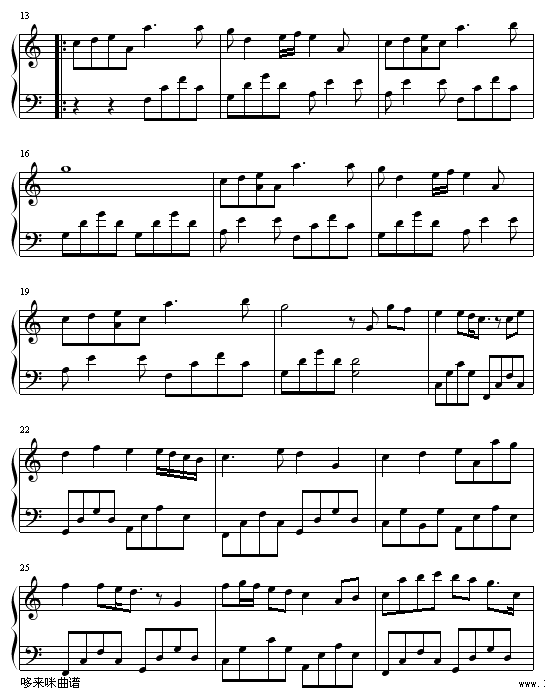 13
16
19
22
25
哆来咪曲谱
www.1